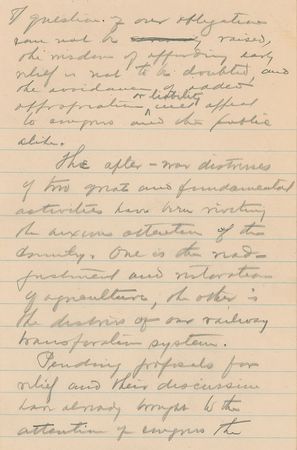 If question of our obligation
can not be raised,
the wisdom of affording early
relief is not to be doubted and
the avoidance of added
or liability
appropriation must appeal
to congress and the public
alike.
The after-war distresses
of two great and fundamental
activities have been riveting
the anxious attention of the
country. One is the read-
justment and restoration
of agriculture, the other is
the distress of our railway
transportation system.
Pending proposals for
relief and their discussion
have already brought to the
attention of congress the